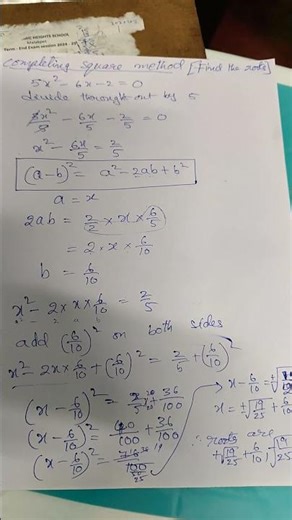 Term - End Exam session 2024
Completing square method [Find the roots]
5x² - 6x - 2 = 0
divide throught out by 5
5x²/5 - 6x/5 - 2/5 = 0
x² - 6x/5 = 2/5
(a-b)² = a² - 2ab + b²
a = x
2ab = 2/2 × x × 6/5
= 2 × x × 6/10
b = 6/10
x² - 2 × x × 6/10 = 2/5
add (6/10)² on both sides
x² - 2x × 6/10 + (6/10)² = 2/5 + (6/10)²
(x - 6/10)² = 2/5 + 36/100
(x - 6/10)² = 40/100 + 36/100
(x - 6/10)² = 76/100
x - 6/10 = ±√19/25
x = ±√19/25 + 6/10
∴ roots are
+√19/25 + 6/10, √19/25